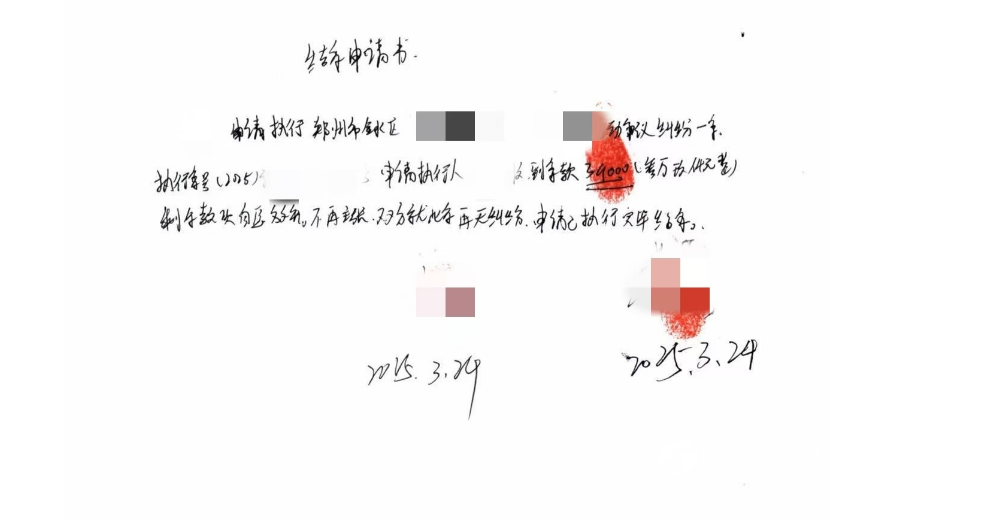 结案申请书.
申请执行 郑州市金水区 动争议纠纷一案.
执行案号(2025) 申请执行人 收到案款 39000(叁万玖仟元整)
剩 案款 自 放弃。不再主张. 双方就此案再无纠纷. 申请已执行完毕结案。
2025.3.24 2025.3.24